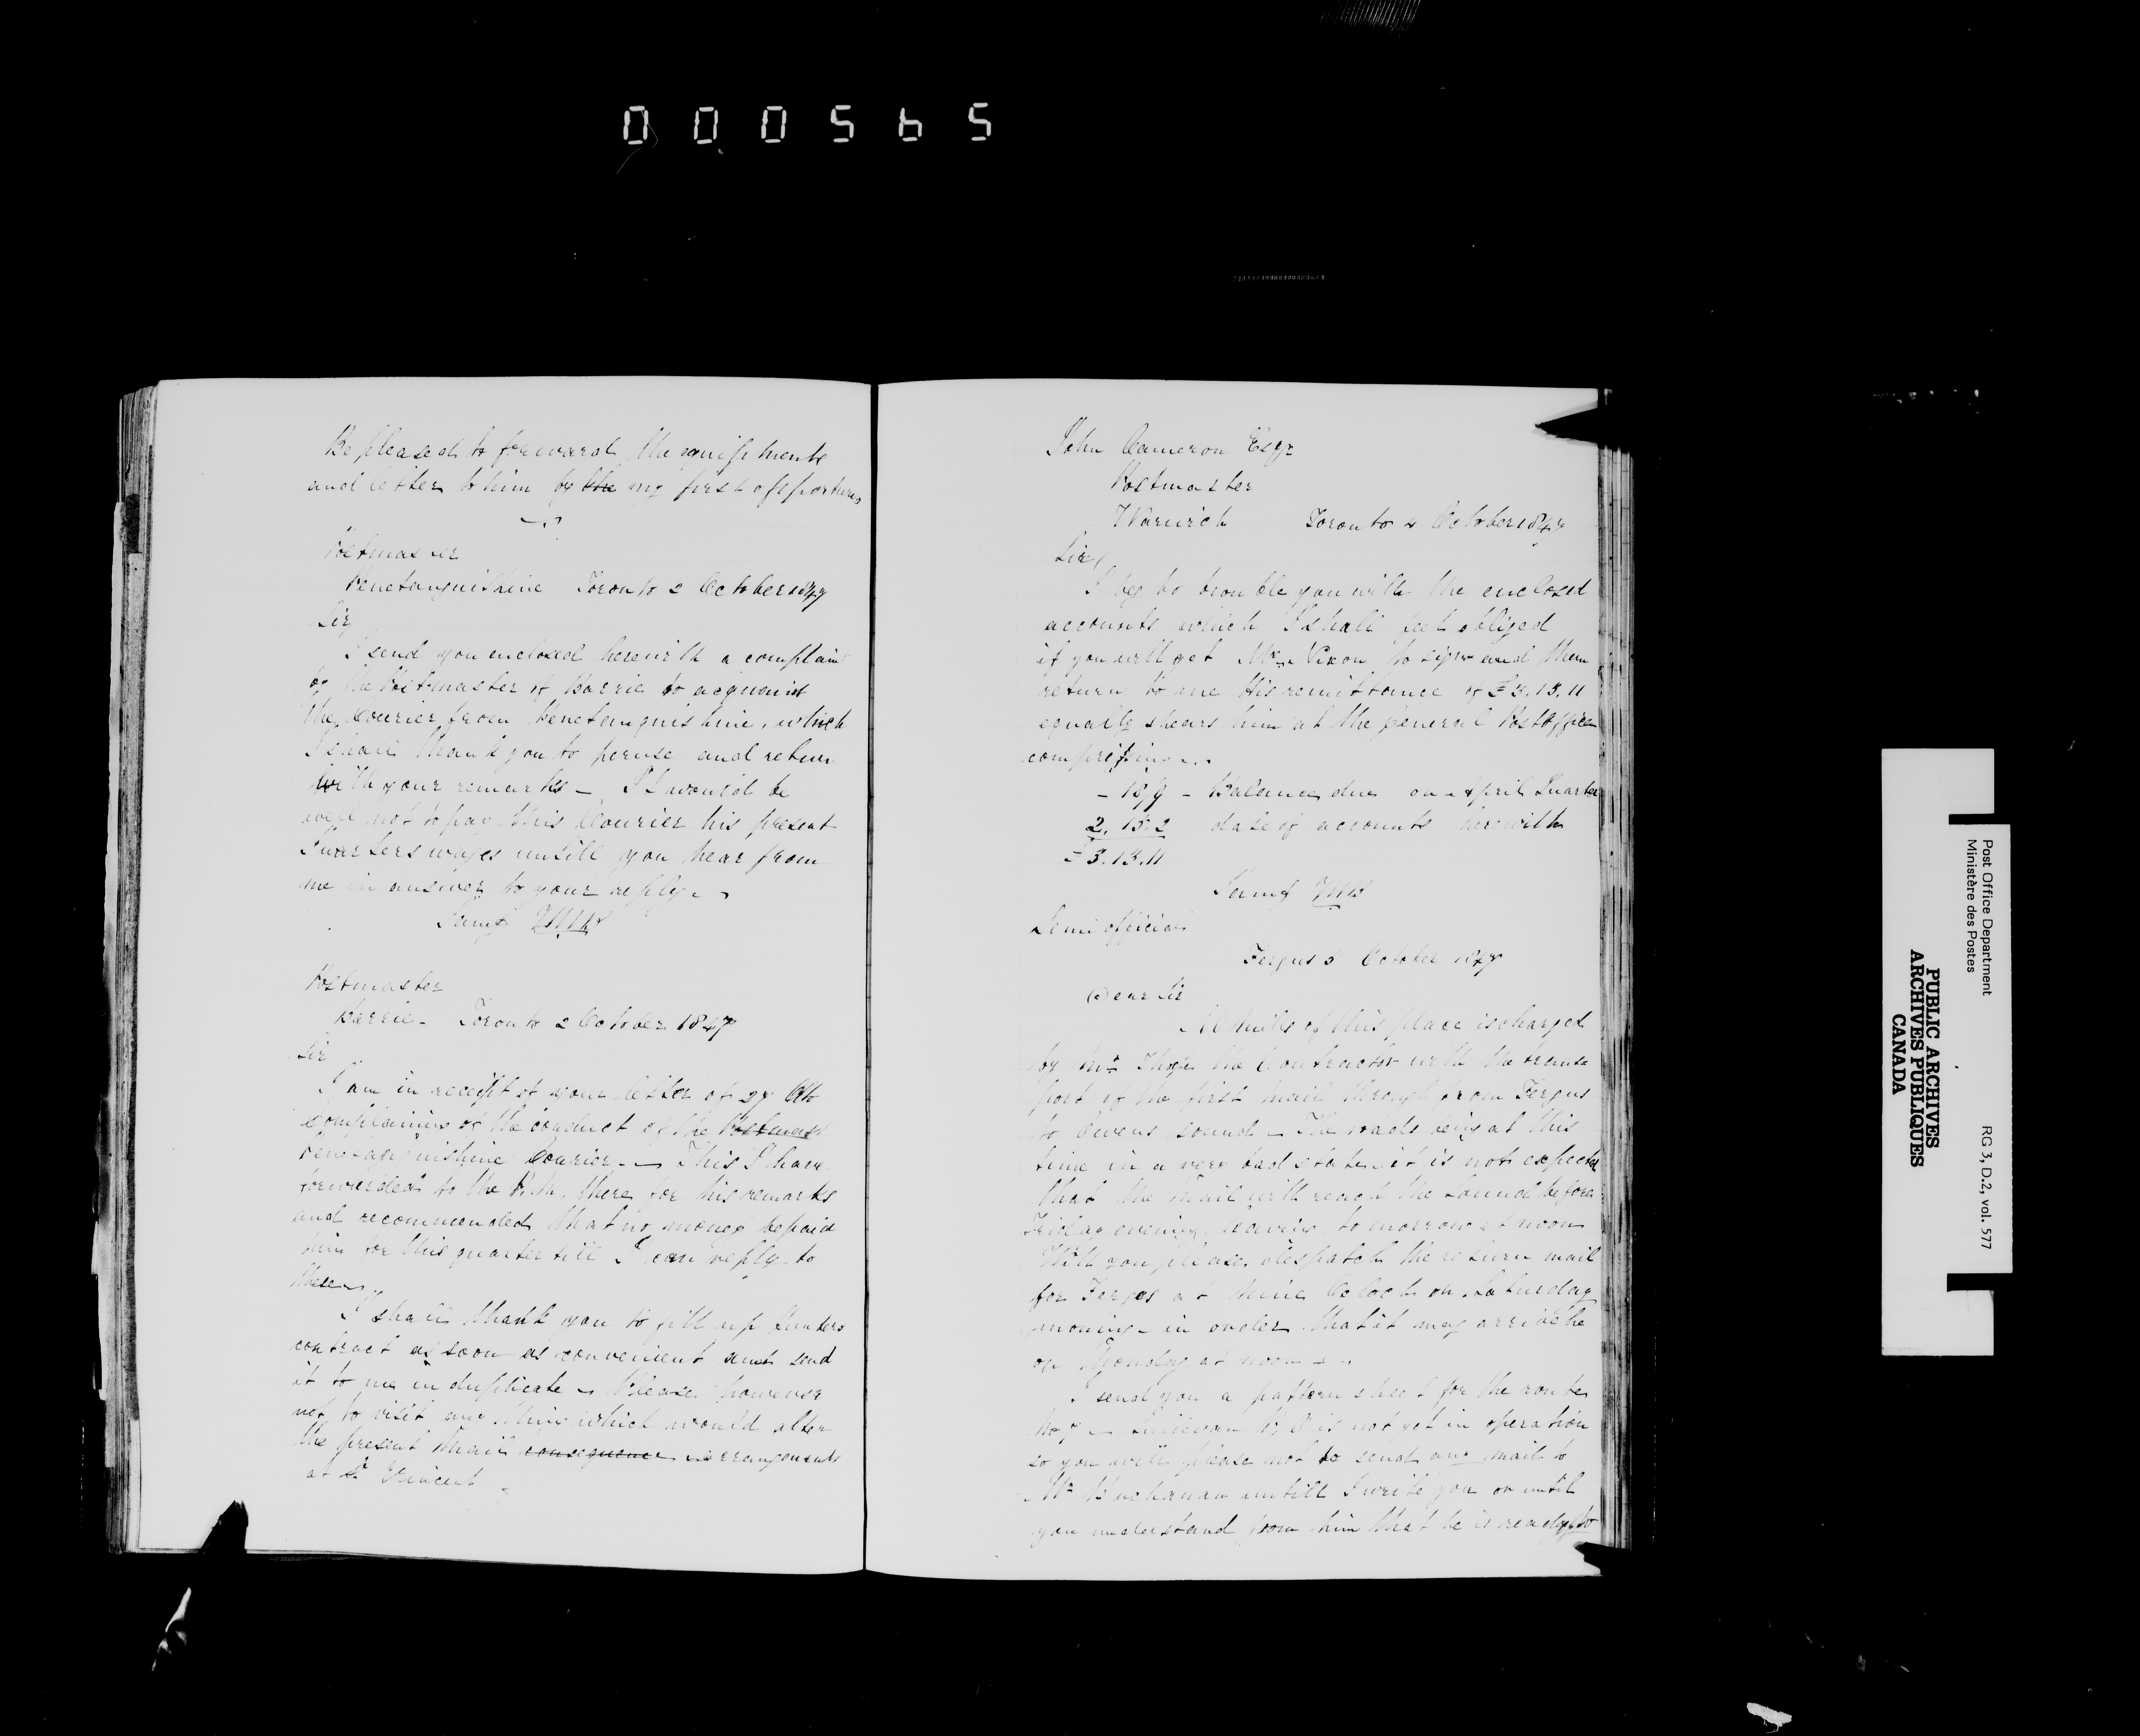 000565
Be pleased to forward the equipments
and letter to him by the my first opportuni
Postmaster
Penetanguishine Toronto 2 October 1847
Sir
I send you enclosed herewith a complaint
of the Postmaster of Barrie to acquaint
the Courier from Penetanguishine, which
I shall thank you to peruse and return
with your remarks – It would be
well not to pay this Courier his present
Quarters wages untill you hear from
me in answer to your reply.
Postmaster
Barrie – Toronto 2 October 1847
Sir
I am in receipt of your letter of 27 Ulto
complaining of the conduct of the Postmast
Penetanguishine Courier. – This I have
forwarded to the P.M. there for his remarks
and recommended that no money be paid
him for this quarter till I can reply to
these
I shall thank you to fill up
contract as soon as convenient and send
it to me in duplicate – Please however
not to visit any thing which would alter
the present Mail consequence arrangements
at St Vincent
John Cameron Esqr
Postmaster
Warwick Toronto 2 October 1847
Sir
I beg to trouble you with the enclosed
accounts which I shall feel obliged
if you will get Mr Nixon to sign and then
return to me His remittance of £3.13.11
equally shears him at the General Post Office
comprising
– 18/9 – Balance due on April Quarter
2.15.2 date of accounts herewith
£3.13.11
Semi official
Fergus 5 October 1847
Dear Sir
of this place is charged
by Mr the Contractor with the trans
port of the first mail through from Fergus
to Owens sound – The roads being at this
time in a very bad state it is not expected
that the Mail will reach the Sound before
Friday evening leaving to morrow at noon
Will you please despatch the return mail
for Fergus at Nine Oclock on Saturday
morning – in order that it may arrive he
on Monday at noon –
I send you a pattern sheet for the route
is not yet in operation
so you will please not to send any mail to
Mr Buchanan untill I write you or until
you understand from him that he is ready to
Post Office Department
Ministère des Postes
RG 3, D.2, vol. 577
PUBLIC ARCHIVES
ARCHIVES PUBLIQUES
CANADA